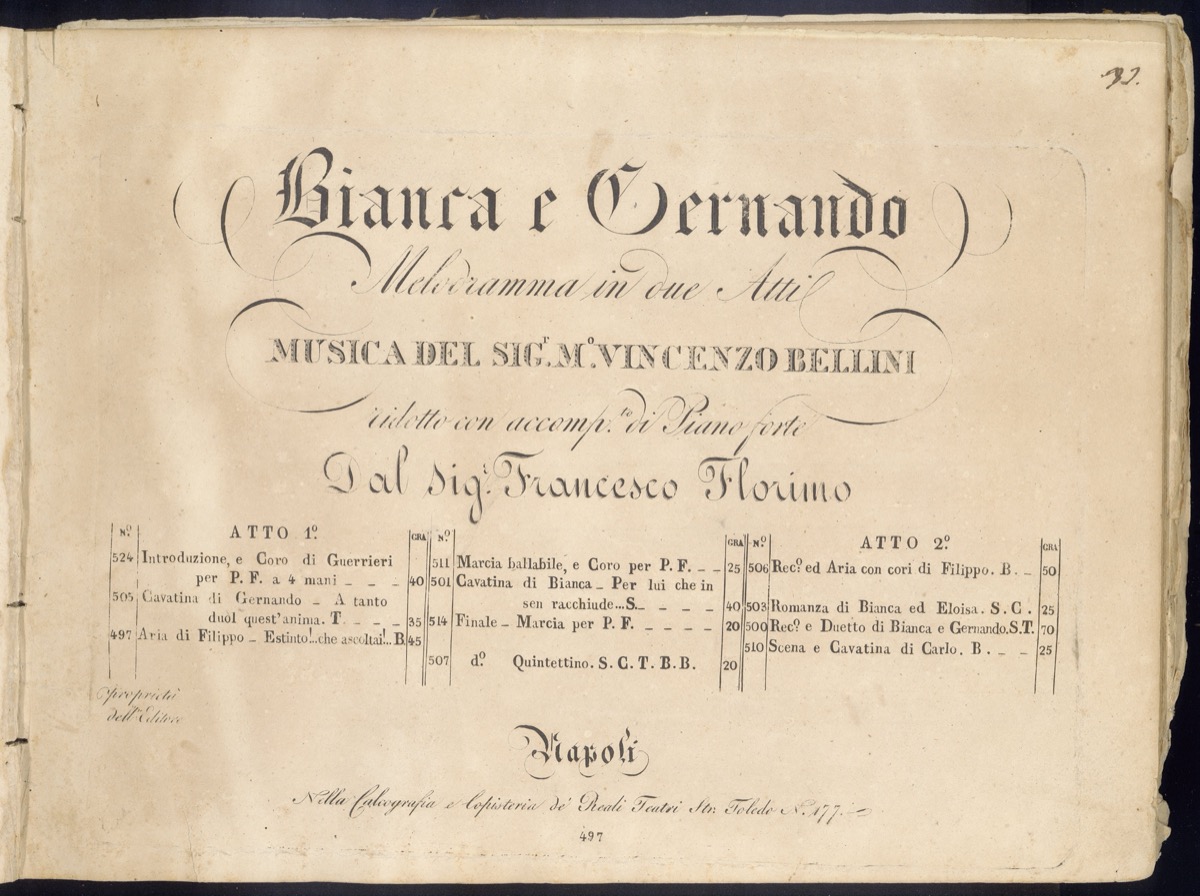 32.
Bianca e Gernando
Melodramma in due Atti
MUSICA DEL SIG.r M.o VINCENZO BELLINI
ridotto con accomp.to di Piano forte
Dal Sig.r Francesco Florimo
N.o ATTO 1.o GRA
524 Introduzione, e Coro di Guerrieri
per P. F. a 4 mani _ _ _ 40
505 Cavatina di Gernando _ A tanto
duol quest'anima. T. _ _ _ 35
497 Aria di Filippo _ Estinto!..che ascoltai!.. B. 45
N.o GRA
511 Marcia ballabile, e Coro per P. F. _ _ 25
501 Cavatina di Bianca _ Per lui che in
sen racchiude...S. _ _ _ _ 40
514 Finale _ Marcia per P. F. _ _ _ _ 20
507 d.o Quintettino. S. C. T. B. B. 20
N.o ATTO 2.o GRA
506 Rec.o ed Aria con cori di Filippo. B. _ 50
503 Romanza di Bianca ed Eloisa. S. C. 25
500 Rec.o e Duetto di Bianca e Gernando. S.T. 70
510 Scena e Cavatina di Carlo. B. _ _ 25
proprietà
dell' Editore
Napoli
Nella Calcografia e Copisteria de' Reali Teatri Str. Toledo N. 177.
497